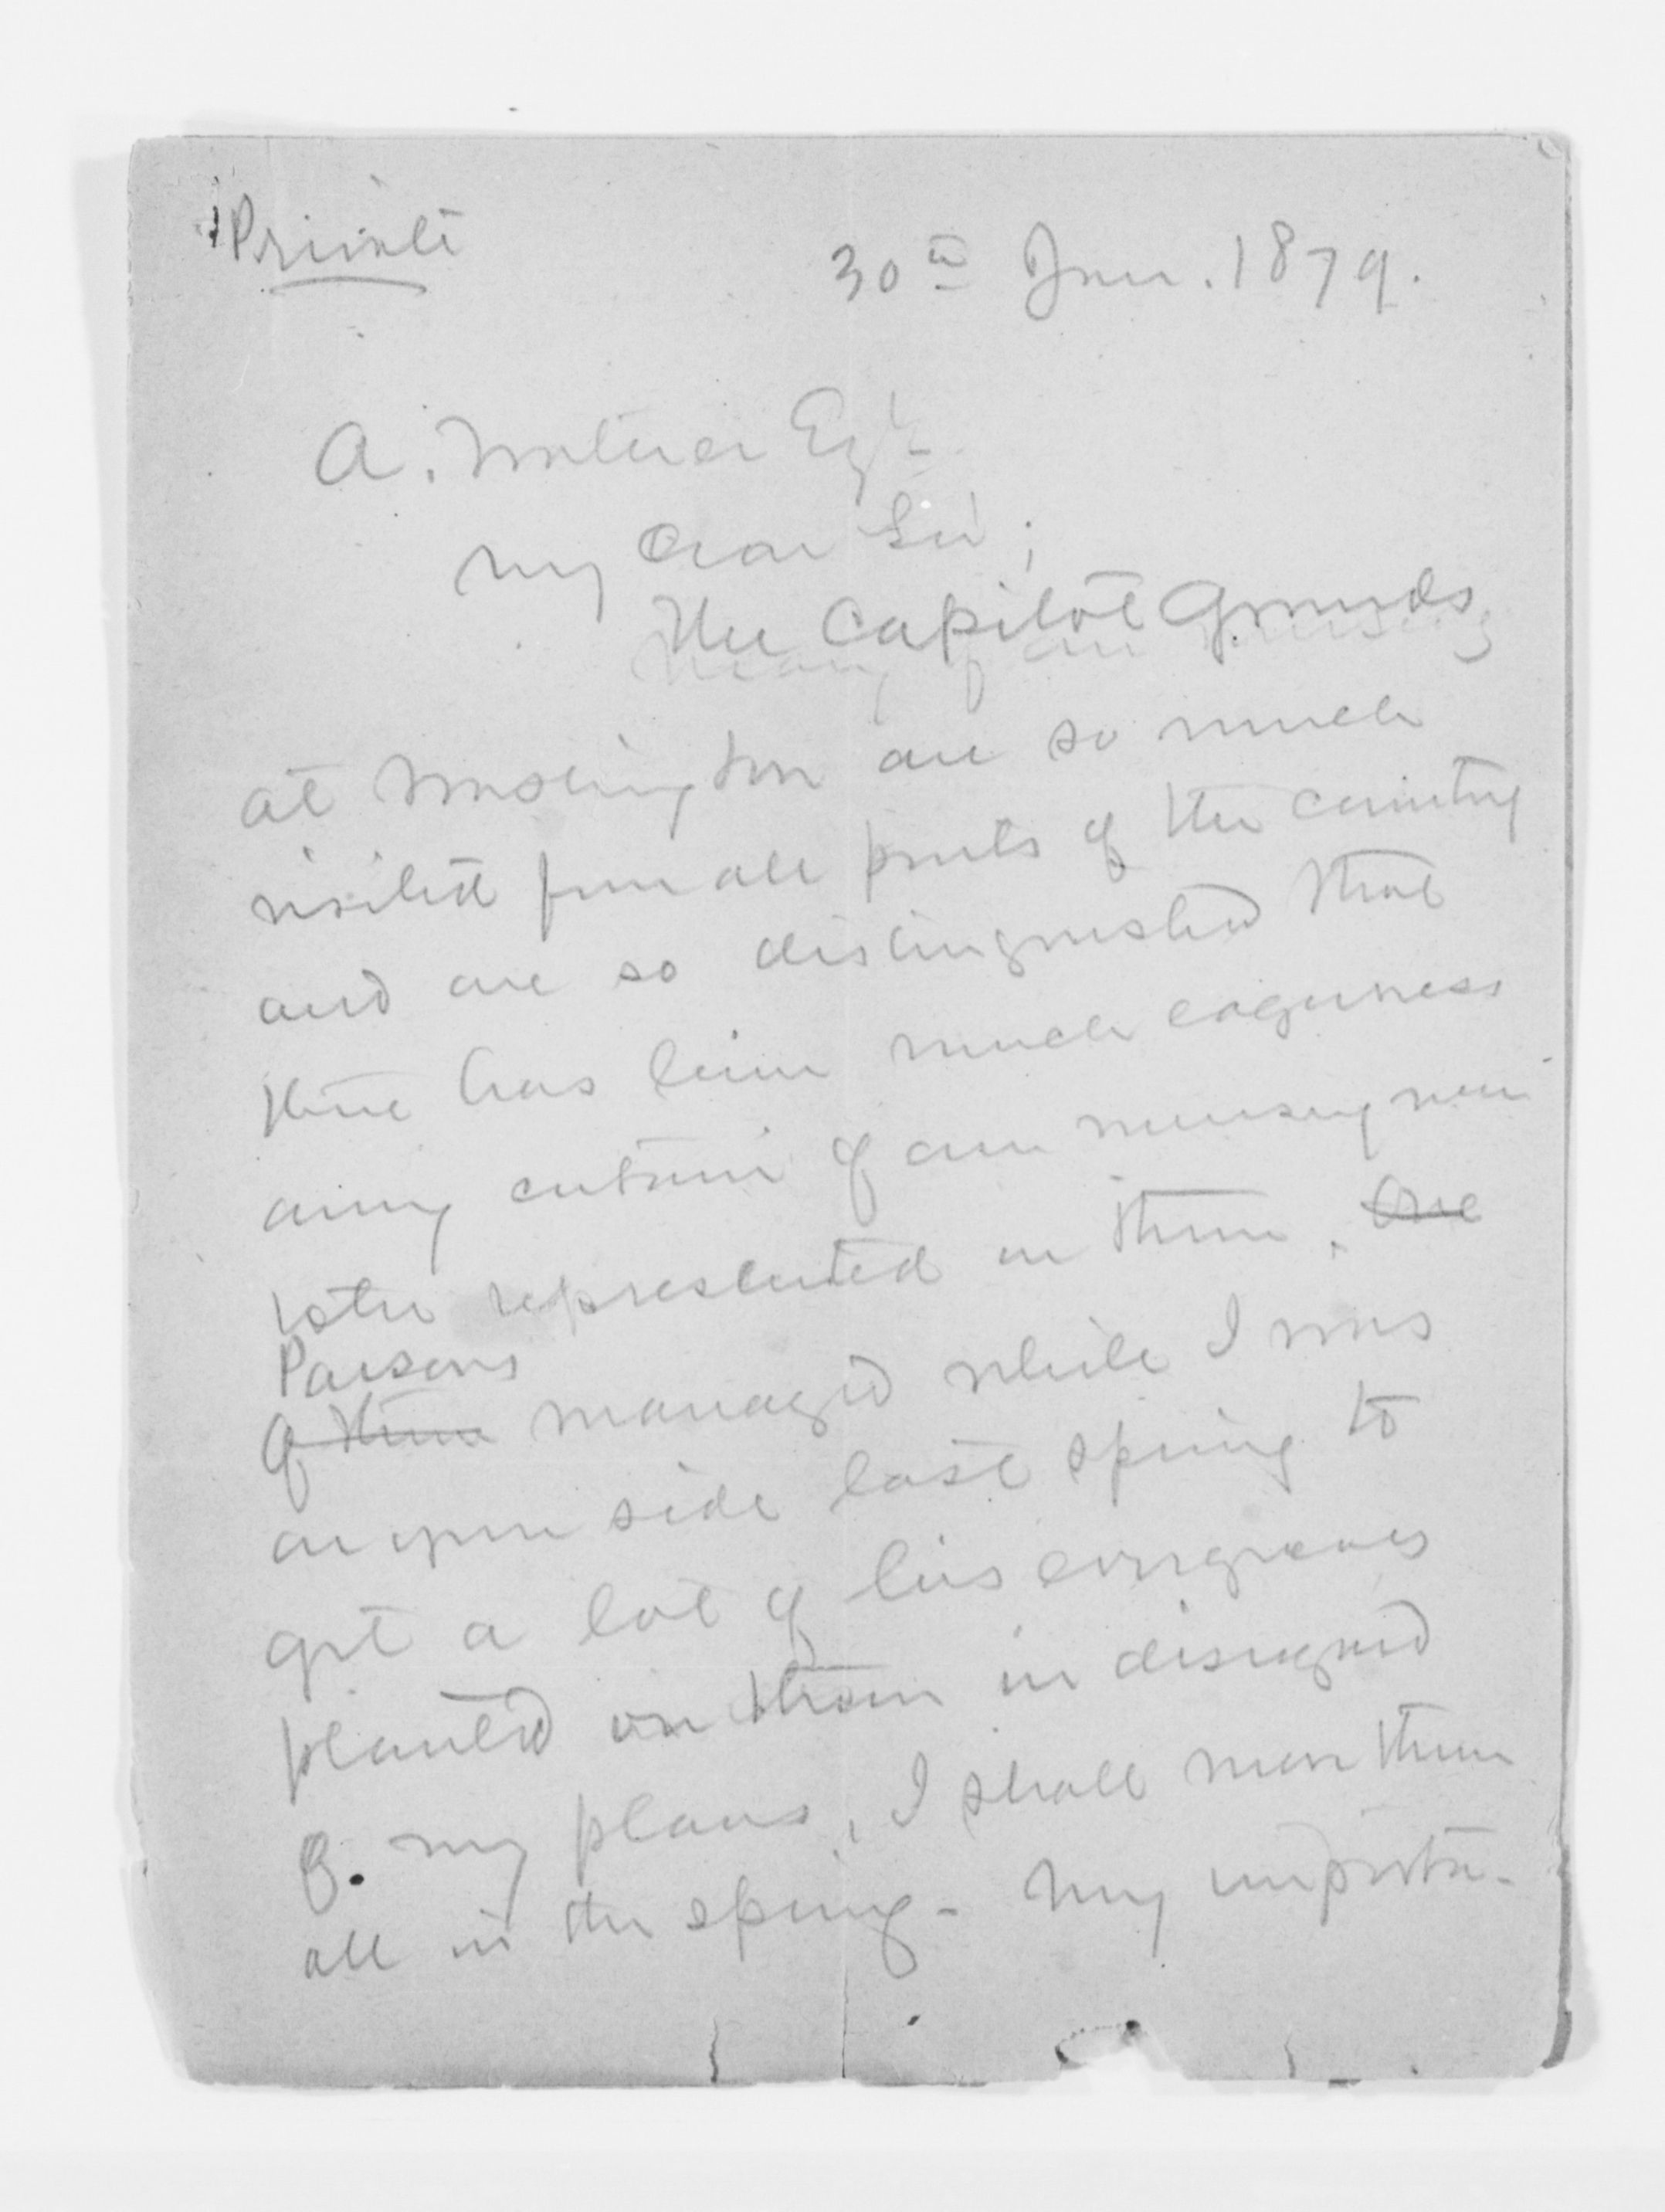 Private
30th Jan. 1879.
A. Waterer Esqr
My Dear Sir;
The Capitol Grounds
Many of our nursery
at Washington are so much
visited from all parts of the country
and are so distinguished that
there has been much eagerness
among certain of our nurserymen
to be represented in them. One
Parsons
of them managed while I was
on your side last spring to
get a lot of his evergreens
planted on them in disregard
of my plans. I shall move them
all in the spring. My importa-